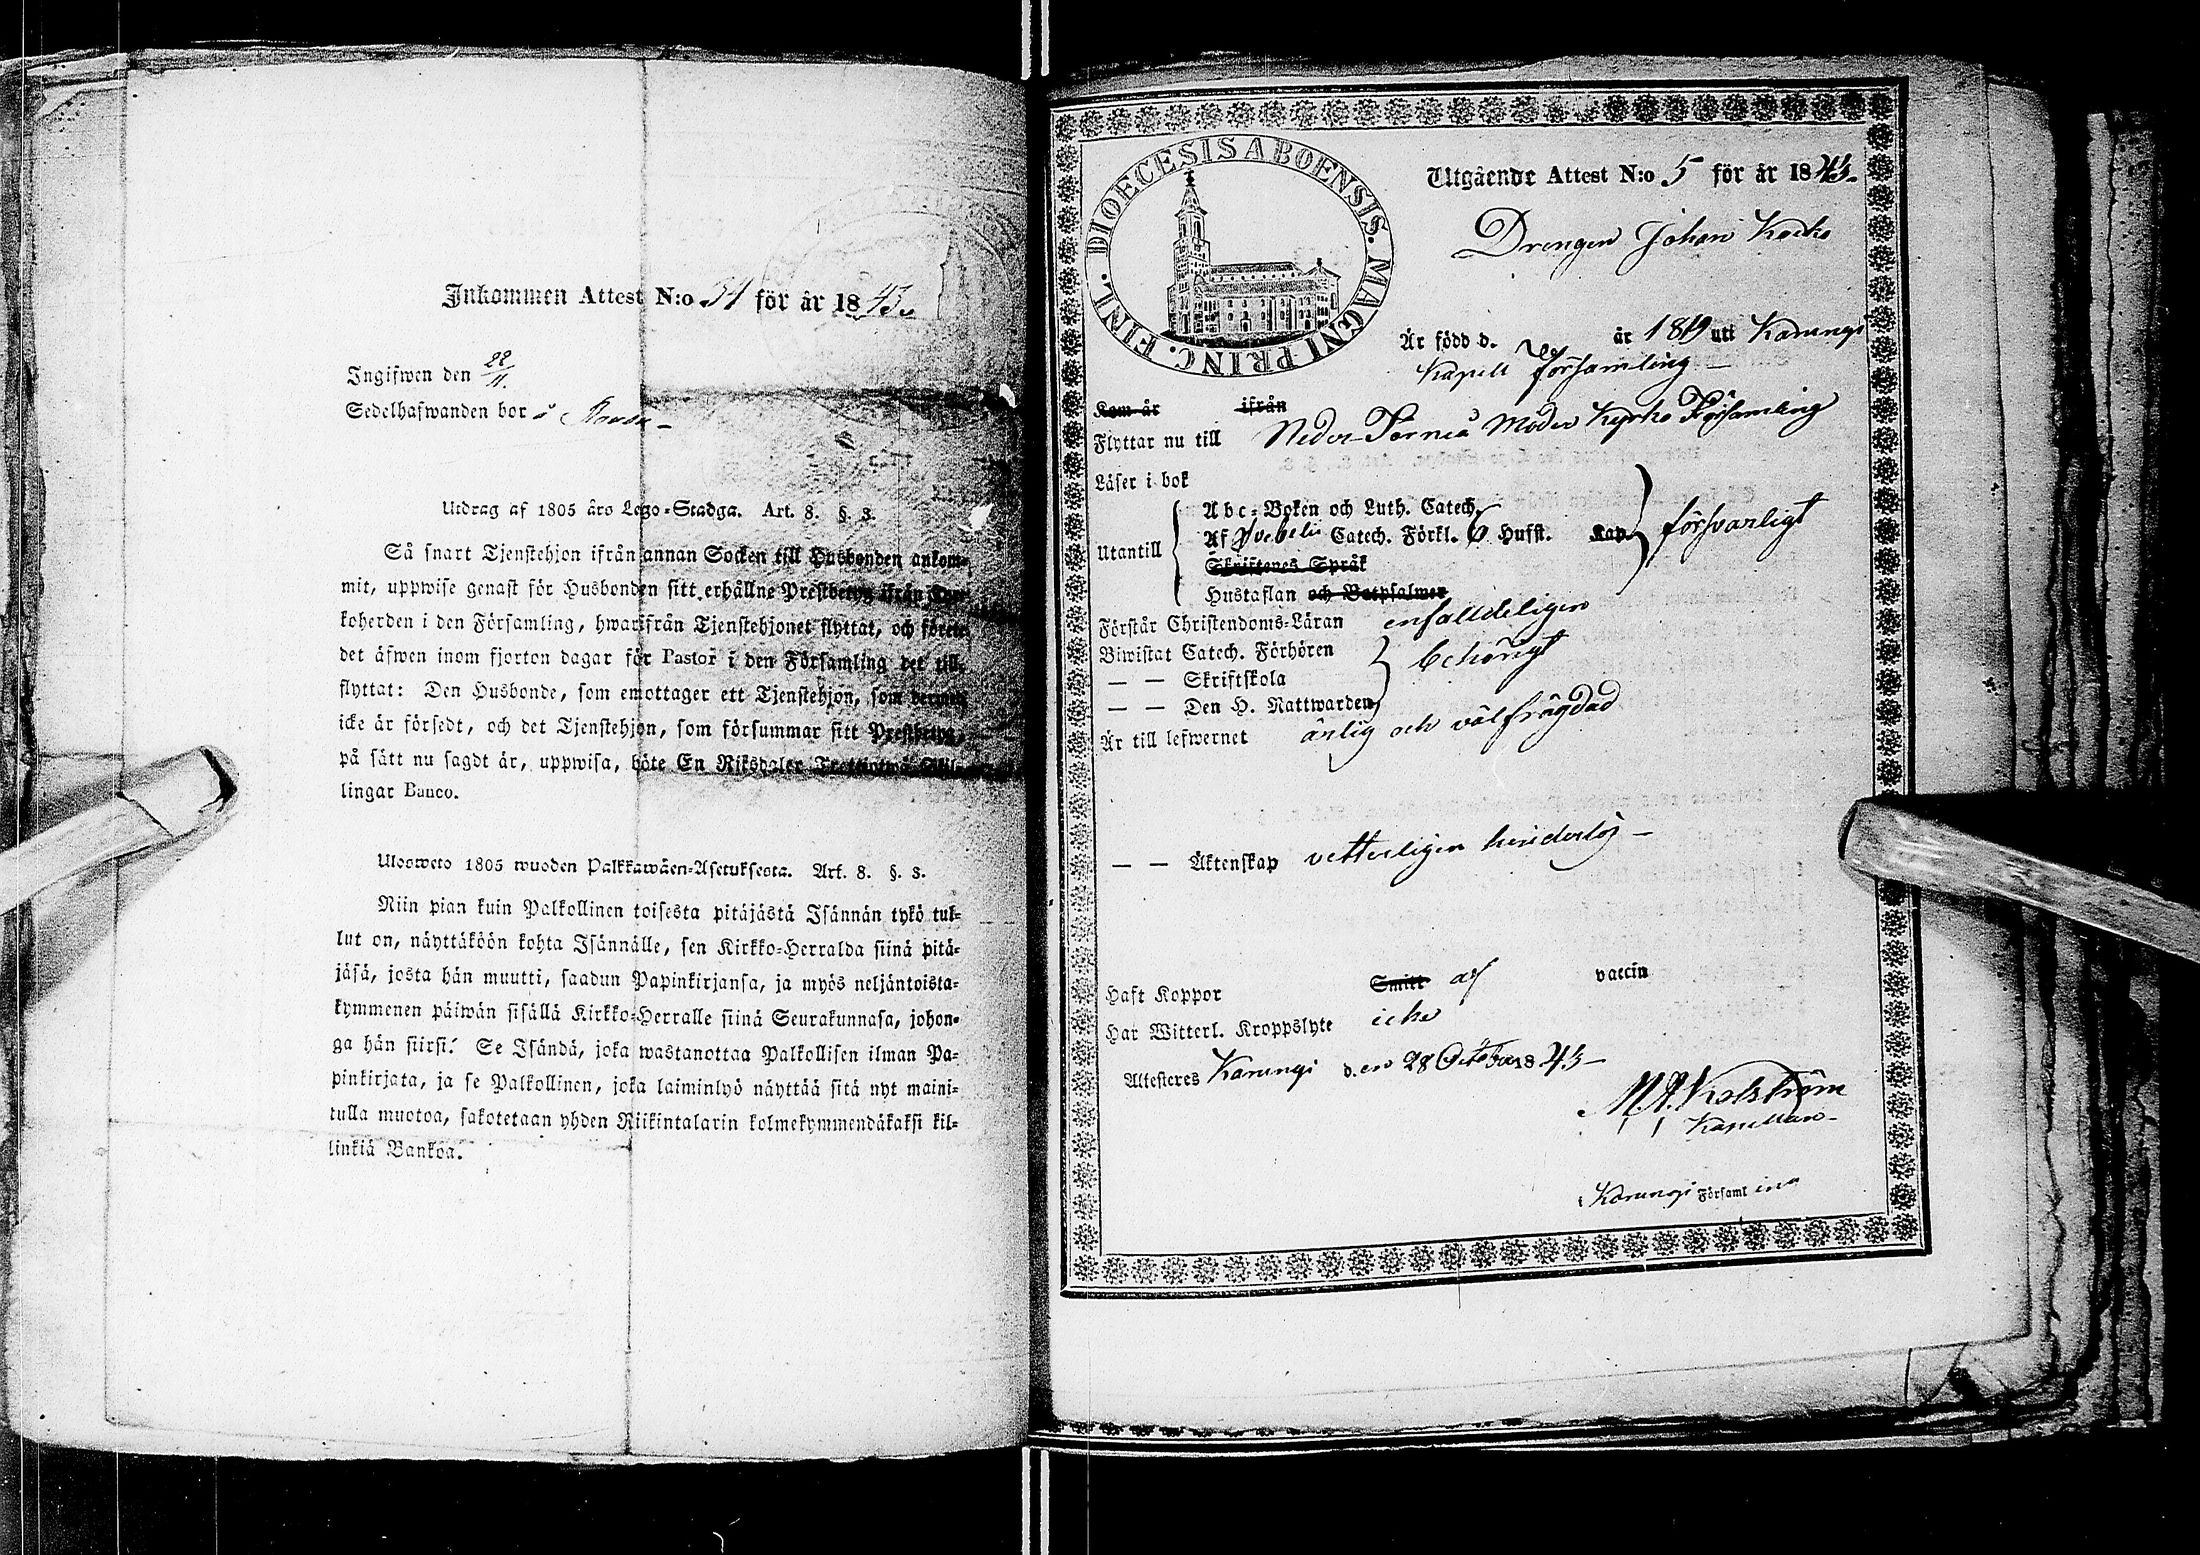 Inkommen Attest N:o 51 för år 1843.
Ingifwen den 22/11.
Sedelhafwanden bor å
Utdrag af 1805 års Lego-Stadga. Art. 8. §. 3.
Så snart Tjenstehjon ifrån annan Socken till Husbonden ankom-
mit, uppwise genast för Husbonden sitt erhållne Prestbetyg ifrån Kyr-
koherden i den Församling, hwarifrån Tjenstehjonet flyttat, och förete
det äfwen inom fjorton dagar för Pastor i den Församling det till-
flyttat: Den Husbonde, som emottager ett Tjenstehjon, som dermed
icke är försedt, och det Tjenstehjon, som försummar sitt Prestbetyg,
på sätt nu sagdt är, uppwisa, böte En Riksdaler Trettiotwå Skil-
lingar Banco.
Ulosweto 1805 wuoden Palkkawäen-Asetuksesta. Art. 8. §. 3.
Niin pian kuin Palkollinen toisesta pitäjästä Isännän tykö tul-
lut on, näyttäköön kohta Isännälle, sen Kirkko-Herralda siinä pitä-
jäsä, josta hän muutti, saadun Papinkirjansa, ja myös neljäntoista-
kymmenen päiwän sisällä Kirkko-Herralle siinä Seurakunnasa, johon-
ga hän siirsi. Se Isändä, joka wastanottaa Palkollisen ilman Pa-
pinkirjata, ja se Palkollinen, joka laiminlyö näyttää sitä nyt maini-
tulla muotoa, sakotetaan yhden Riikintalarin kolmekymmendäkaksi kil-
linkiä Bankoa.
DIOECESIS ABOENSIS. MAGNI PRINC. FINL.
Utgående Attest N:o 5 för år 1843.
Drengen Johan
Är född d. år 1819 uti Karungi
Kapell Församling
Kom år ifrån
Flyttar nu till Neder-Torneå Moder Kyrko Församling
Läser i bok
Utantill Abc-Boken och Luth. Catech.
Af Svebelii Catech. Förkl. 6 Hufst. Kap. försvarligt
Skriftenes Språk
Hustaflan och Botpsalmer
Förstår Christendoms-Läran enfalldeligen
Biwistat Catech. Förhören behörigt
— — Skriftskola
— — Den H. Nattwarden
Är till lefwernet ärlig och välfrägdad
— — Äktenskap vetterligen hinderlös —
Haft Koppor Smitt af vaccin
Har Witterl. Kroppslyte icke
Attesteres Karungi den 28 October 1843 —
Kapellan
Karungi Församling